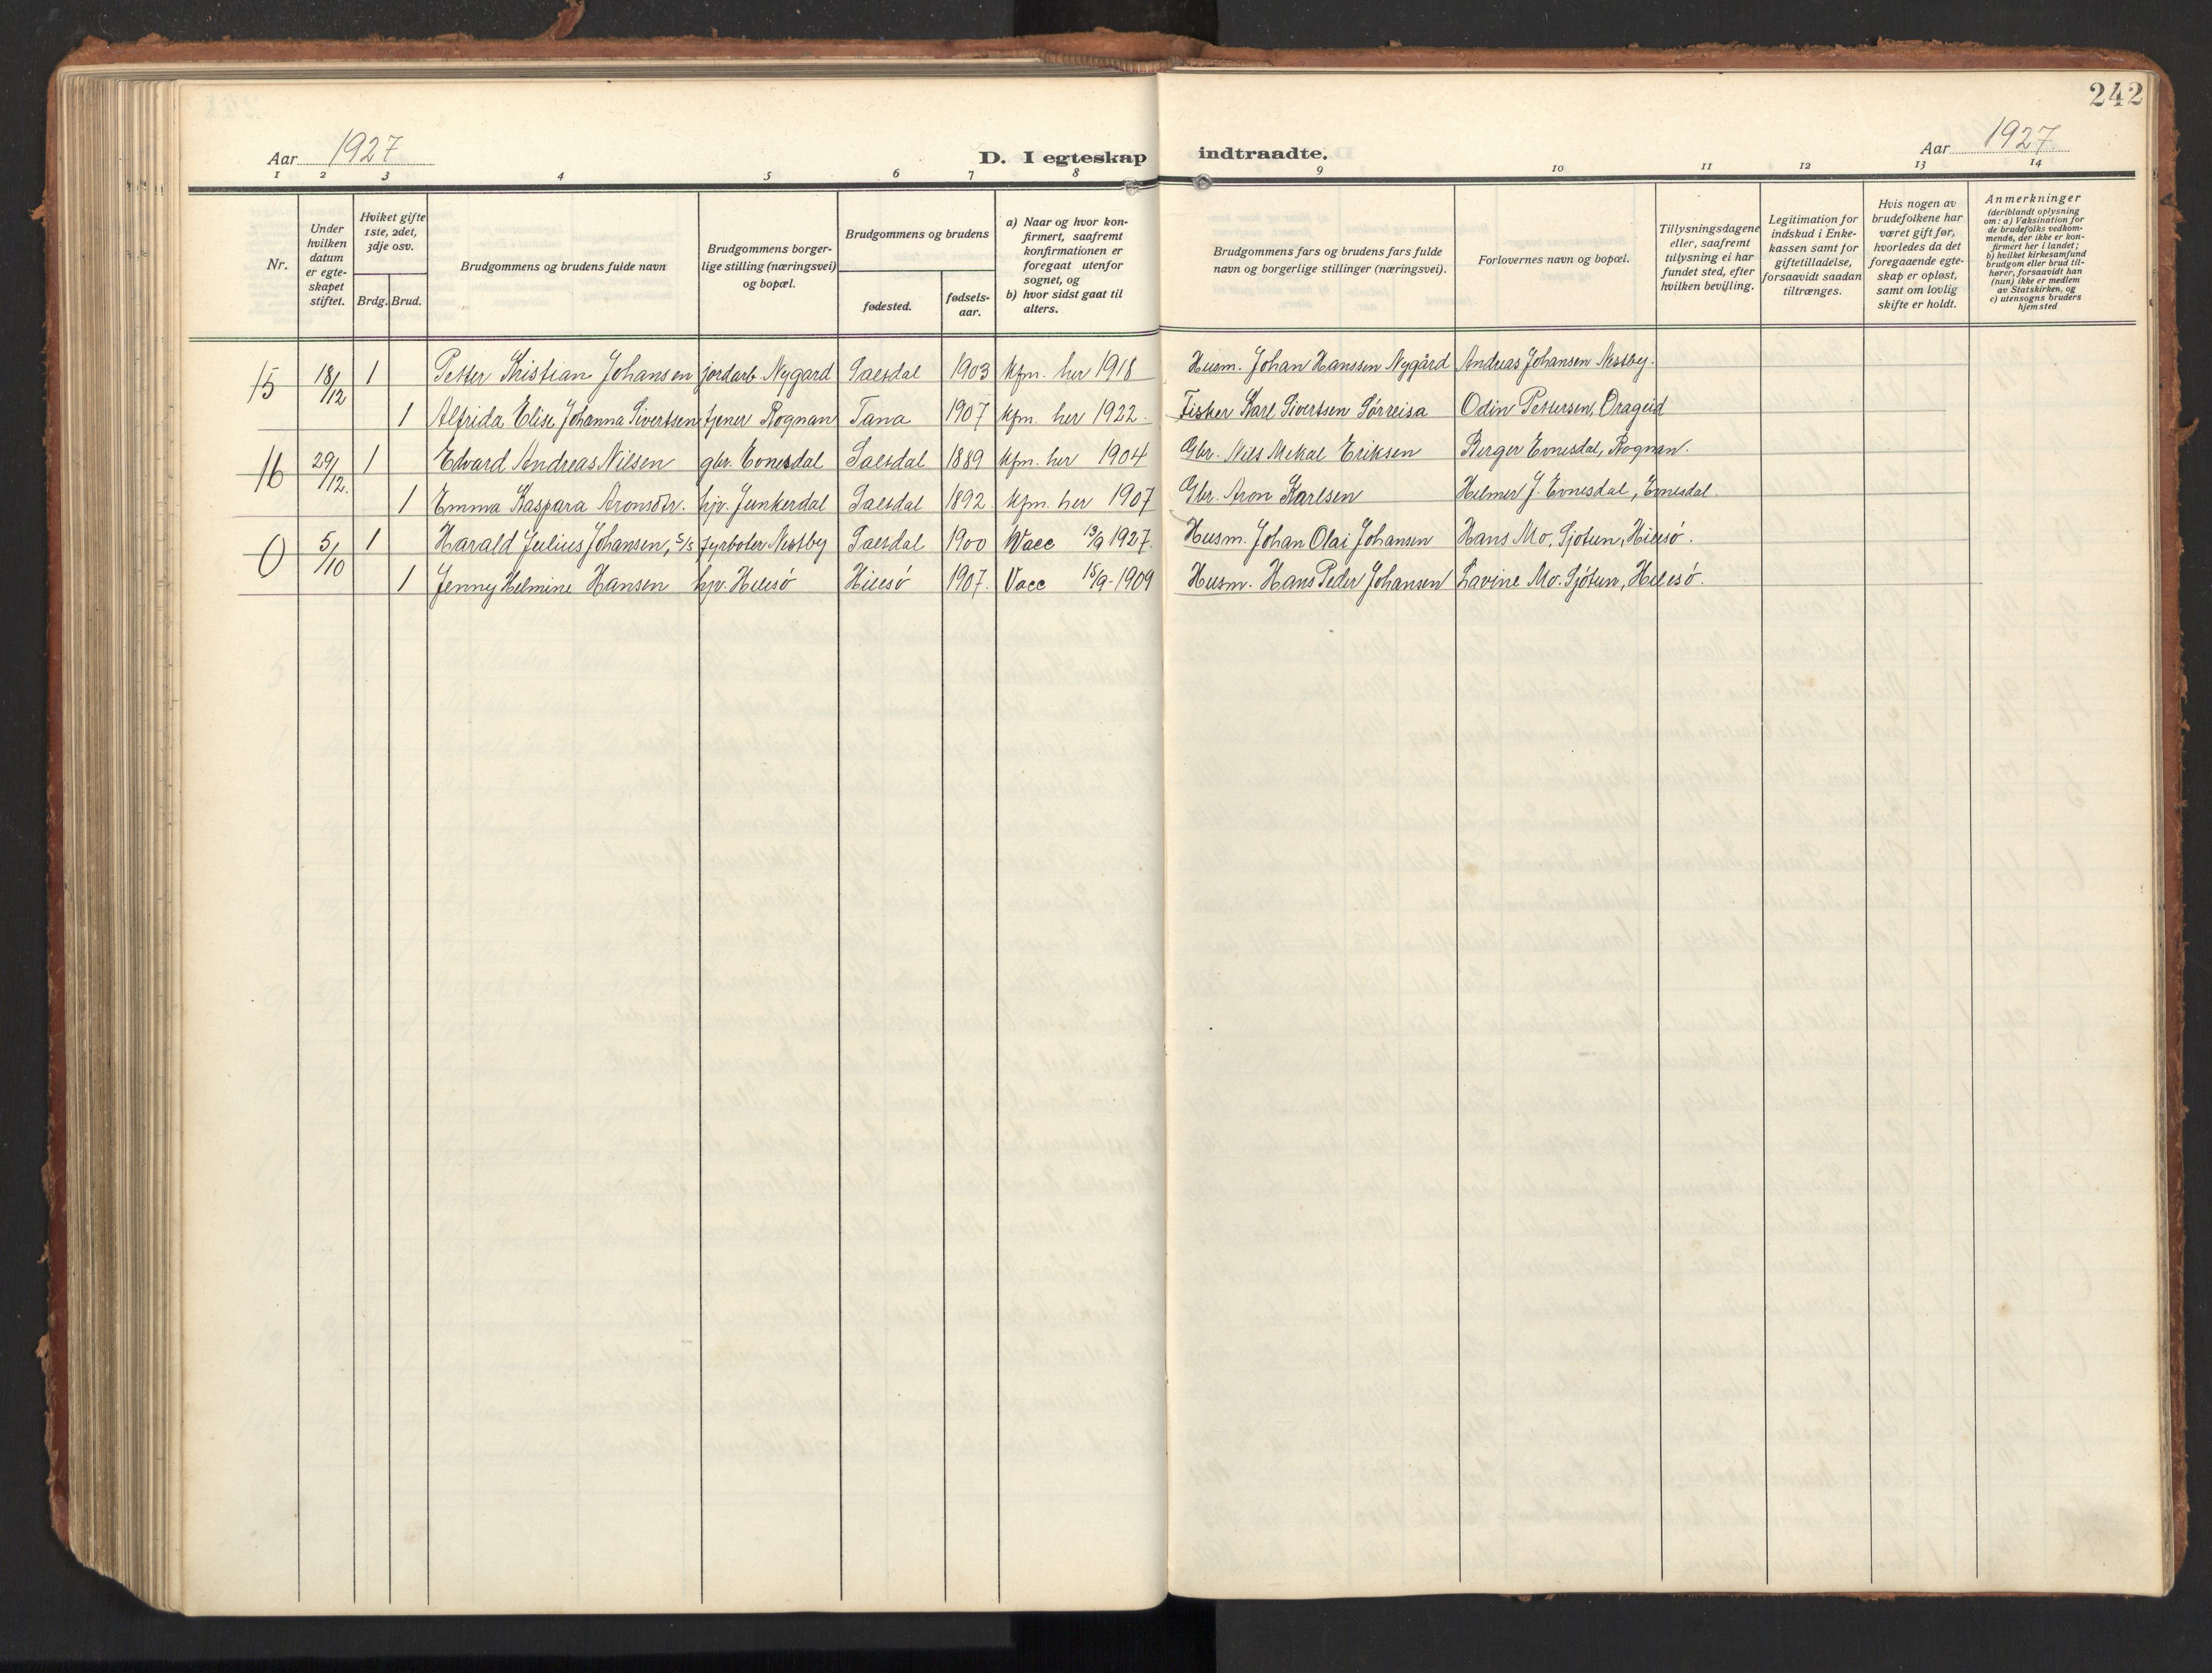 242
Aar 1927
D. I egteskap indtraadte.
Aar 1927
1 2 3 4 5 6 7 8 9 10 11 12 13 14
Nr.
Under hvilken datum er egteskapet stiftet.
Hvilket gifte 1ste, 2det, 3dje osv.
Brdg. Brud.
Brudgommens og brudens fulde navn
Brudgommens borgerlige stilling (næringsvei) og bopæl.
Brudgommens og brudens
fødested.
fødselsaar.
a) Naar og hvor konfirmert, saafremt konfirmationen er foregaat utenfor sognet, og
b) hvor sidst gaat til alters.
Brudgommens fars og brudens fars fulde navn og borgerlige stillinger (næringsvei).
Forlovernes navn og bopæl.
Tillysningsdagene eller, saafremt tillysning ei har fundet sted, efter hvilken bevilling.
Legitimation for indskud i Enkekassen samt for giftetilladelse, forsaavidt saadan tiltrænges.
Hvis nogen av brudefolkene har været gift før, hvorledes da det foregaaende egteskap er opløst, samt om lovlig skifte er holdt.
Anmerkninger
(deriblandt oplysning om: a) Vaksination for de brudefolks vedkommende, der ikke er konfirmert her i landet;
b) hvilket kirkesamfund brudgom eller brud tilhører, forsaavidt han (hun) ikke er medlem av Statskirken, og
c) utensogns bruders hjemsted
15 18/12 1 Petter Kristian Johansen jordarb Nygard Saltdal 1903 kfm. her 1918 Husm. Johan Hanssen Nygård Andreas Johansen Nestby.
1 Alfrida Elise Johanna Sivertsen tjener Rognan Tana 1907 kfm. her 1922. Fisker Karl Sivertsen Sørreisa Odin Pettersen, Drageid
16 29/12. 1 Edvard Andreas Nilsen gbr. Evnesdal Saltdal 1889 kfm. her 1904 Gbr. Nils Mekal Eriksen Birger Evnesdal, Rognan.
1 Emma Kaspara Aronsdtr. hp. Junkerdal Saltdal 1892. kfm. her 1907 Gbr. Aron Karlsen Helmer J. Evnesdal, Evnesdal.
0 5/10 1 Harald Julius Johansen, s/s fyrbøter Nestby Saltdal 1900 Vacc 13/9 1927. Husm. Johan Olai Johansen Hans Mo, Sjøtun, Hillesø.
1 Jenny Helmine Hansen hp. Hillesø Hillesø 1907. Vacc 15/9 - 1909 Husm. Hans Peder Johansen Lavine Mo. Sjøtun, Hillesø.